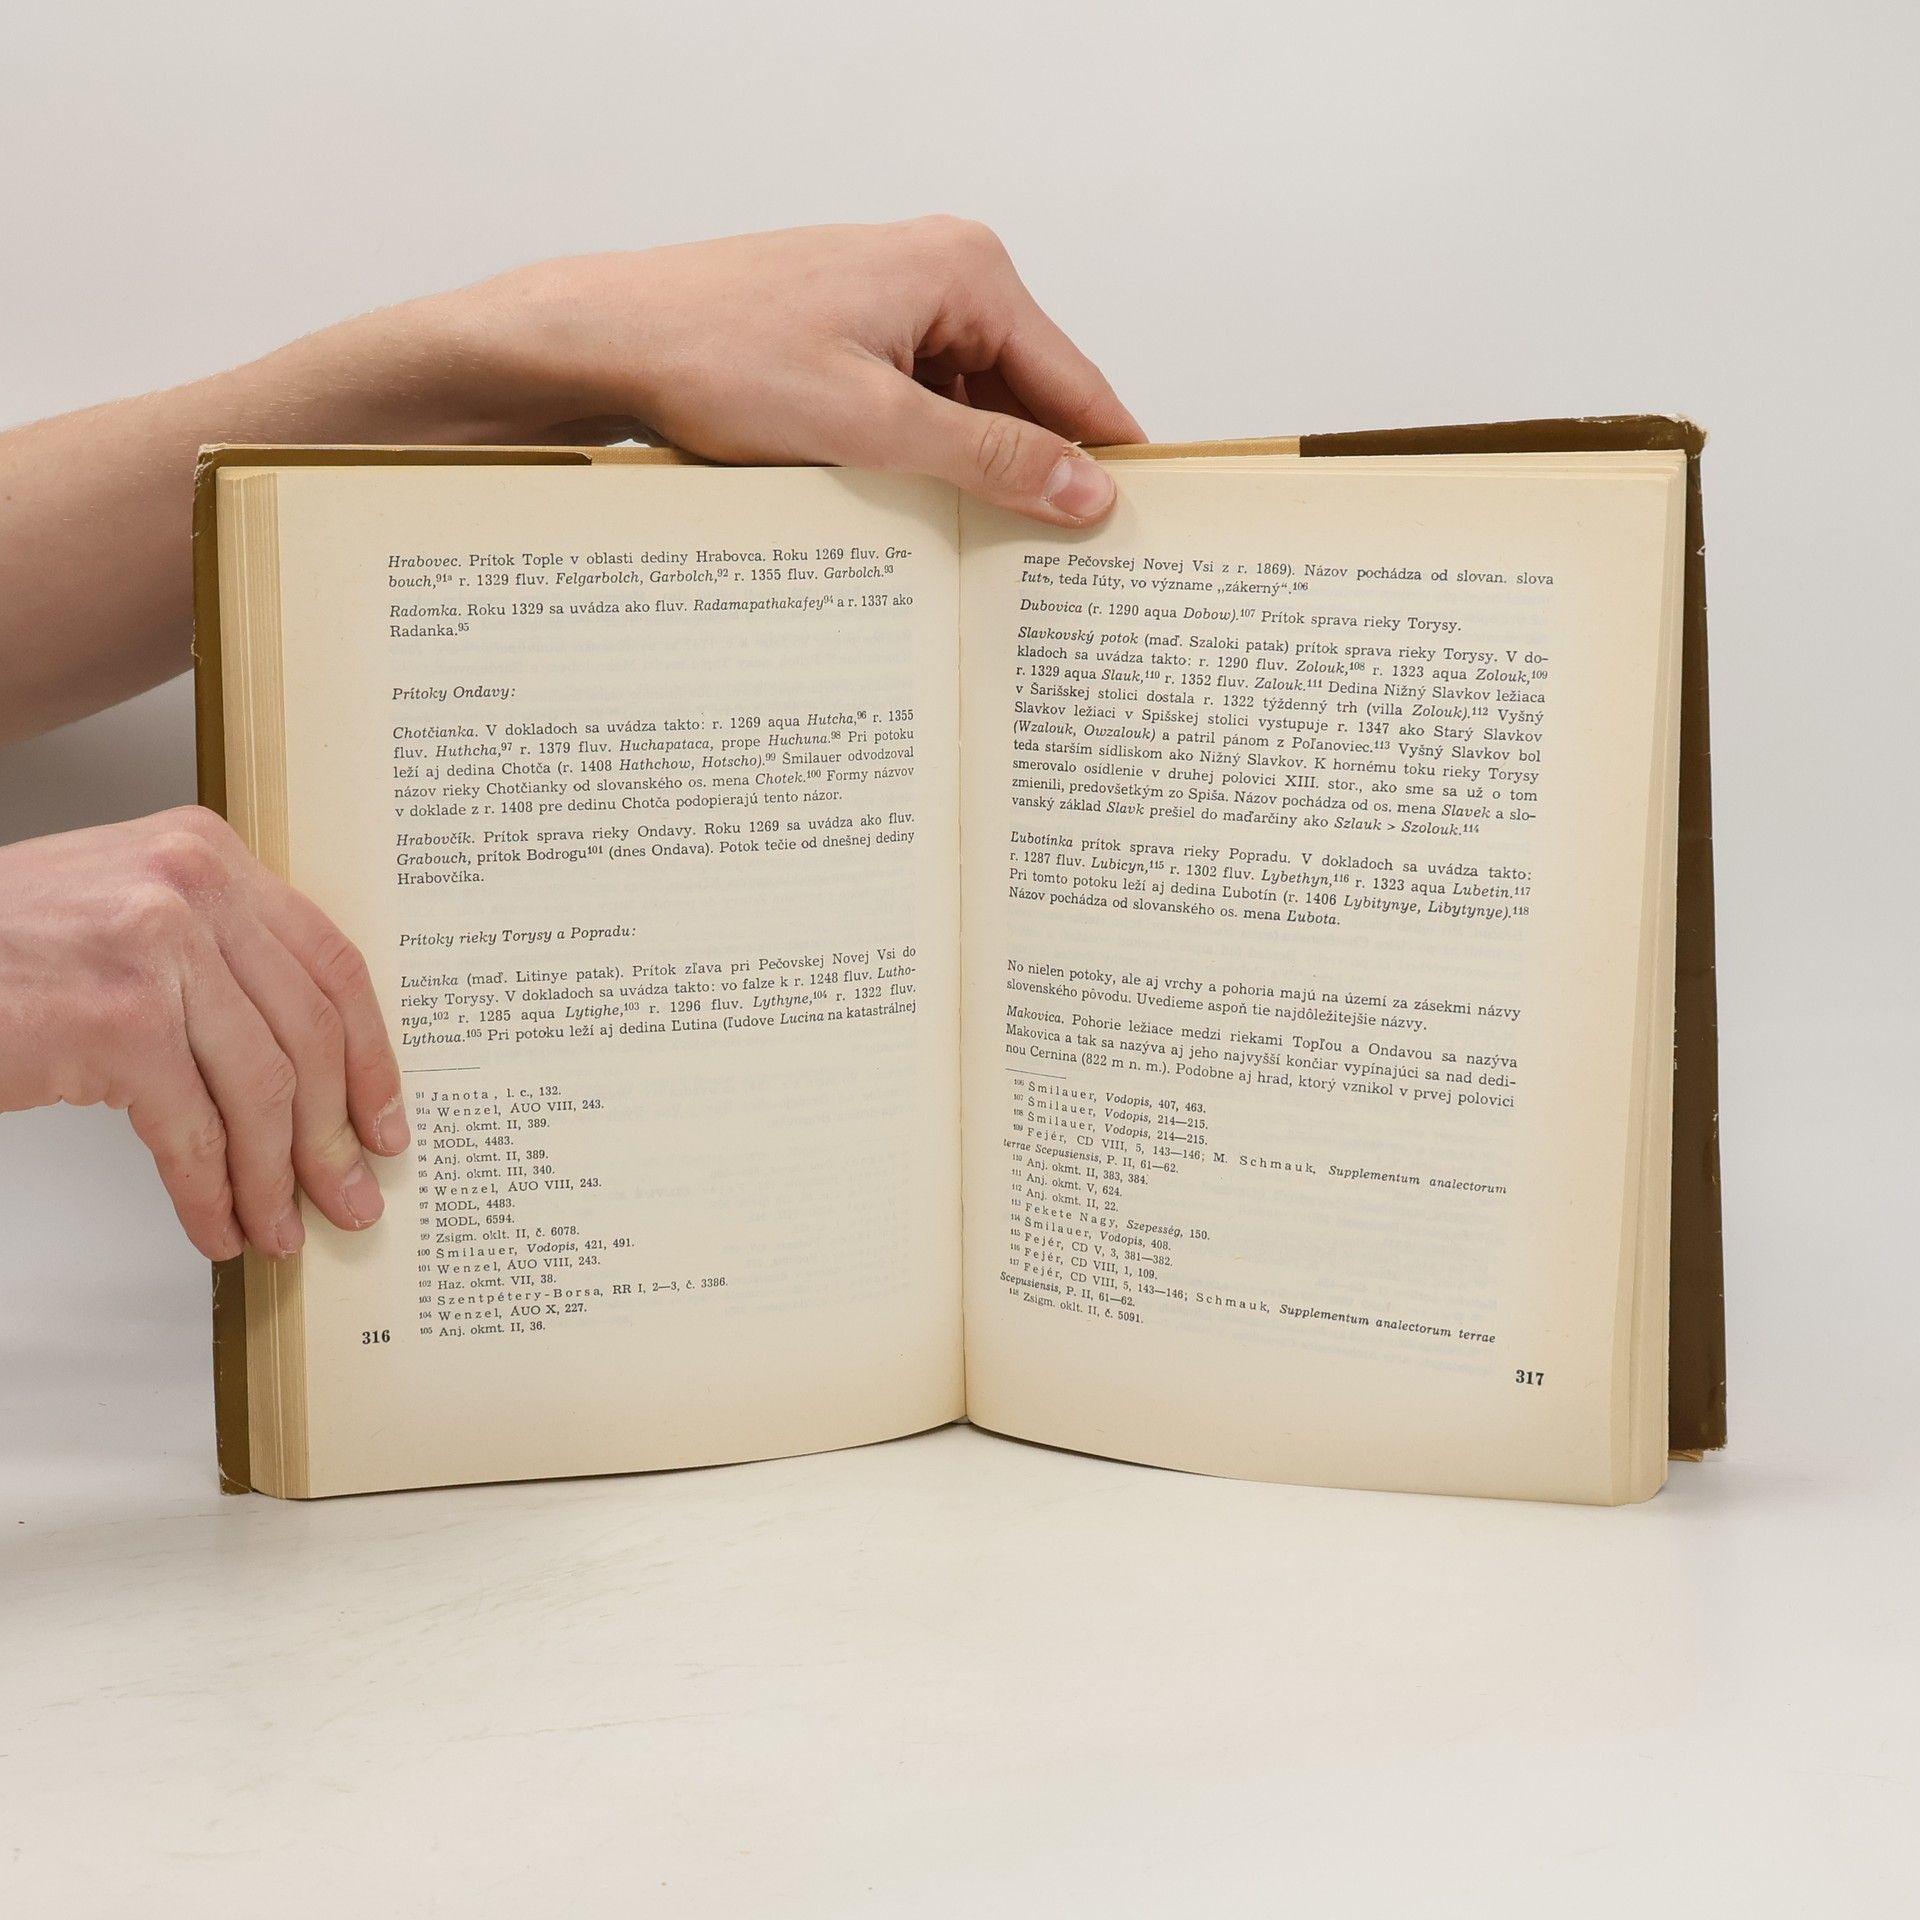 Hrabovec. Prítok Tople v oblasti dediny Hrabovca. Roku 1269 fluv. Gra-
bouch,⁹¹ᵃ r. 1329 fluv. Felgarbolch, Garbolch,⁹² r. 1355 fluv. Garbolch.⁹³
Radomka. Roku 1329 sa uvádza ako fluv. Radamapathakafey⁹⁴ a r. 1337 ako
Radanka.⁹⁵
Prítoky Ondavy:
Chotčianka. V dokladoch sa uvádza takto: r. 1269 aqua Hutcha,⁹⁶ r. 1355
fluv. Huthcha,⁹⁷ r. 1379 fluv. Huchapataca, prope Huchuna.⁹⁸ Pri potoku
leží aj dedina Chotča (r. 1408 Hathchow, Hotscho).⁹⁹ Šmilauer odvodzoval
názov rieky Chotčianky od slovanského os. mena Chotek.¹⁰⁰ Formy názvov
v doklade z r. 1408 pre dedinu Chotča podopierajú tento názor.
Hrabovčík. Prítok sprava rieky Ondavy. Roku 1269 sa uvádza ako fluv.
Grabouch, prítok Bodrogu¹⁰¹ (dnes Ondava). Potok tečie od dnešnej dediny
Hrabovčíka.
Prítoky rieky Torysy a Popradu:
Lučinka (maď. Litinye patak). Prítok zľava pri Pečovskej Novej Vsi do
rieky Torysy. V dokladoch sa uvádza takto: vo falze k r. 1248 fluv. Lutho-
nya,¹⁰² r. 1285 aqua Lytighe,¹⁰³ r. 1296 fluv. Lythyne,¹⁰⁴ r. 1322 fluv.
Lythoua.¹⁰⁵ Pri potoku leží aj dedina Ľutina (ľudove Lucina na katastrálnej
⁹¹ Janota, l. c., 132.
⁹¹ᵃ Wenzel, ÁUO VIII, 243.
⁹² Anj. okmt. II, 389.
⁹³ MODL, 4483.
⁹⁴ Anj. okmt. II, 389.
⁹⁵ Anj. okmt. III, 340.
⁹⁶ Wenzel, ÁUO VIII, 243.
⁹⁷ MODL, 4483.
⁹⁸ MODL, 6594.
⁹⁹ Zsigm. oklt. II, č. 6078.
¹⁰⁰ Šmilauer, Vodopis, 421, 491.
¹⁰¹ Wenzel, ÁUO VIII, 243.
¹⁰² Haz. okmt. VII, 38.
¹⁰³ Szentpétery-Borsa, RR I, 2—3, č. 3386.
¹⁰⁴ Wenzel, ÁUO X, 227.
¹⁰⁵ Anj. okmt. II, 36.
316
mape Pečovskej Novej Vsi z r. 1869). Názov pochádza od slovan. slova
ľutъ, teda ľúty, vo význame „zákerný“.¹⁰⁶
Dubovica (r. 1290 aqua Dobow).¹⁰⁷ Prítok sprava rieky Torysy.
Slavkovský potok (maď. Szaloki patak) prítok sprava rieky Torysy. V do-
kladoch sa uvádza takto: r. 1290 fluv. Zolouk,¹⁰⁸ r. 1323 aqua Zolouk,¹⁰⁹
r. 1329 aqua Slauk,¹¹⁰ r. 1352 fluv. Zalouk.¹¹¹ Dedina Nižný Slavkov ležiaca
v Šarišskej stolici dostala r. 1322 týždenný trh (villa Zolouk).¹¹² Vyšný
Slavkov ležiaci v Spišskej stolici vystupuje r. 1347 ako Starý Slavkov
(Wzalouk, Owzalouk) a patril pánom z Poľanoviec.¹¹³ Vyšný Slavkov bol
teda starším sídliskom ako Nižný Slavkov. K hornému toku rieky Torysy
smerovalo osídlenie v druhej polovici XIII. stor., ako sme sa už o tom
zmienili, predovšetkým zo Spiša. Názov pochádza od os. mena Slavek a slo-
vanský základ Slavk prešiel do maďarčiny ako Szlauk > Szolouk.¹¹⁴
Ľubotínka prítok sprava rieky Popradu. V dokladoch sa uvádza takto:
r. 1287 fluv. Lubicyn,¹¹⁵ r. 1302 fluv. Lybethyn,¹¹⁶ r. 1323 aqua Lubetin.¹¹⁷
Pri tomto potoku leží aj dedina Ľubotín (r. 1406 Lybitynye, Libytynye).¹¹⁸
Názov pochádza od slovanského os. mena Ľubota.
No nielen potoky, ale aj vrchy a pohoria majú na území za zásekmi názvy
slovenského pôvodu. Uvedieme aspoň tie najdôležitejšie názvy.
Makovica. Pohorie ležiace medzi riekami Topľou a Ondavou sa nazýva
Makovica a tak sa nazýva aj jeho najvyšší končiar vypínajúci sa nad dedi-
nou Cernina (822 m n. m.). Podobne aj hrad, ktorý vznikol v prvej polovici
¹⁰⁶ Šmilauer, Vodopis, 407, 463.
¹⁰⁷ Šmilauer, Vodopis, 214—215.
¹⁰⁸ Šmilauer, Vodopis, 214—215.
¹⁰⁹ Fejér, CD VIII, 5, 143—146; M. Schmauk, Supplementum analectorum
terrae Scepusiensis, P. II, 61—62.
¹¹⁰ Anj. okmt. II, 383, 384.
¹¹¹ Anj. okmt. V, 624.
¹¹² Anj. okmt. II, 22.
¹¹³ Fekete Nagy, Szepesség, 150.
¹¹⁴ Šmilauer, Vodopis, 408.
¹¹⁵ Fejér, CD V, 3, 381—382.
¹¹⁶ Fejér, CD VIII, 1, 109.
¹¹⁷ Fejér, CD VIII, 5, 143—146; Schmauk, Supplementum analectorum terrae
Scepusiensis, P. II, 61—62.
¹¹⁸ Zsigm. oklt. II, č. 5091.
317